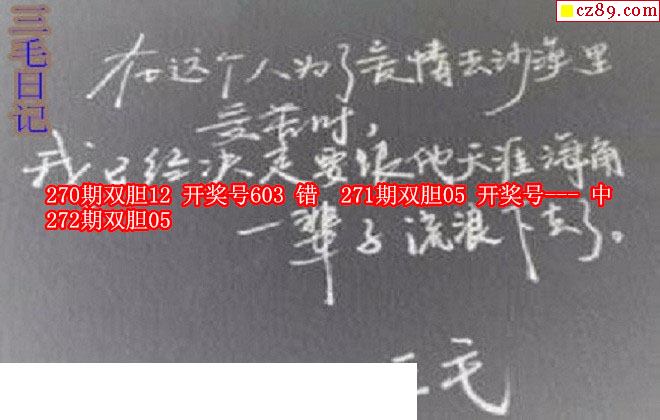 三毛日记
cz89.com
在这个人为了爱情去沙漠里
受苦时，
我已经决定要跟他天涯海角
270期双胆12 开奖号603 错 271期双胆05 开奖号--- 中
272期双胆05
一辈子流浪下去了。
三毛